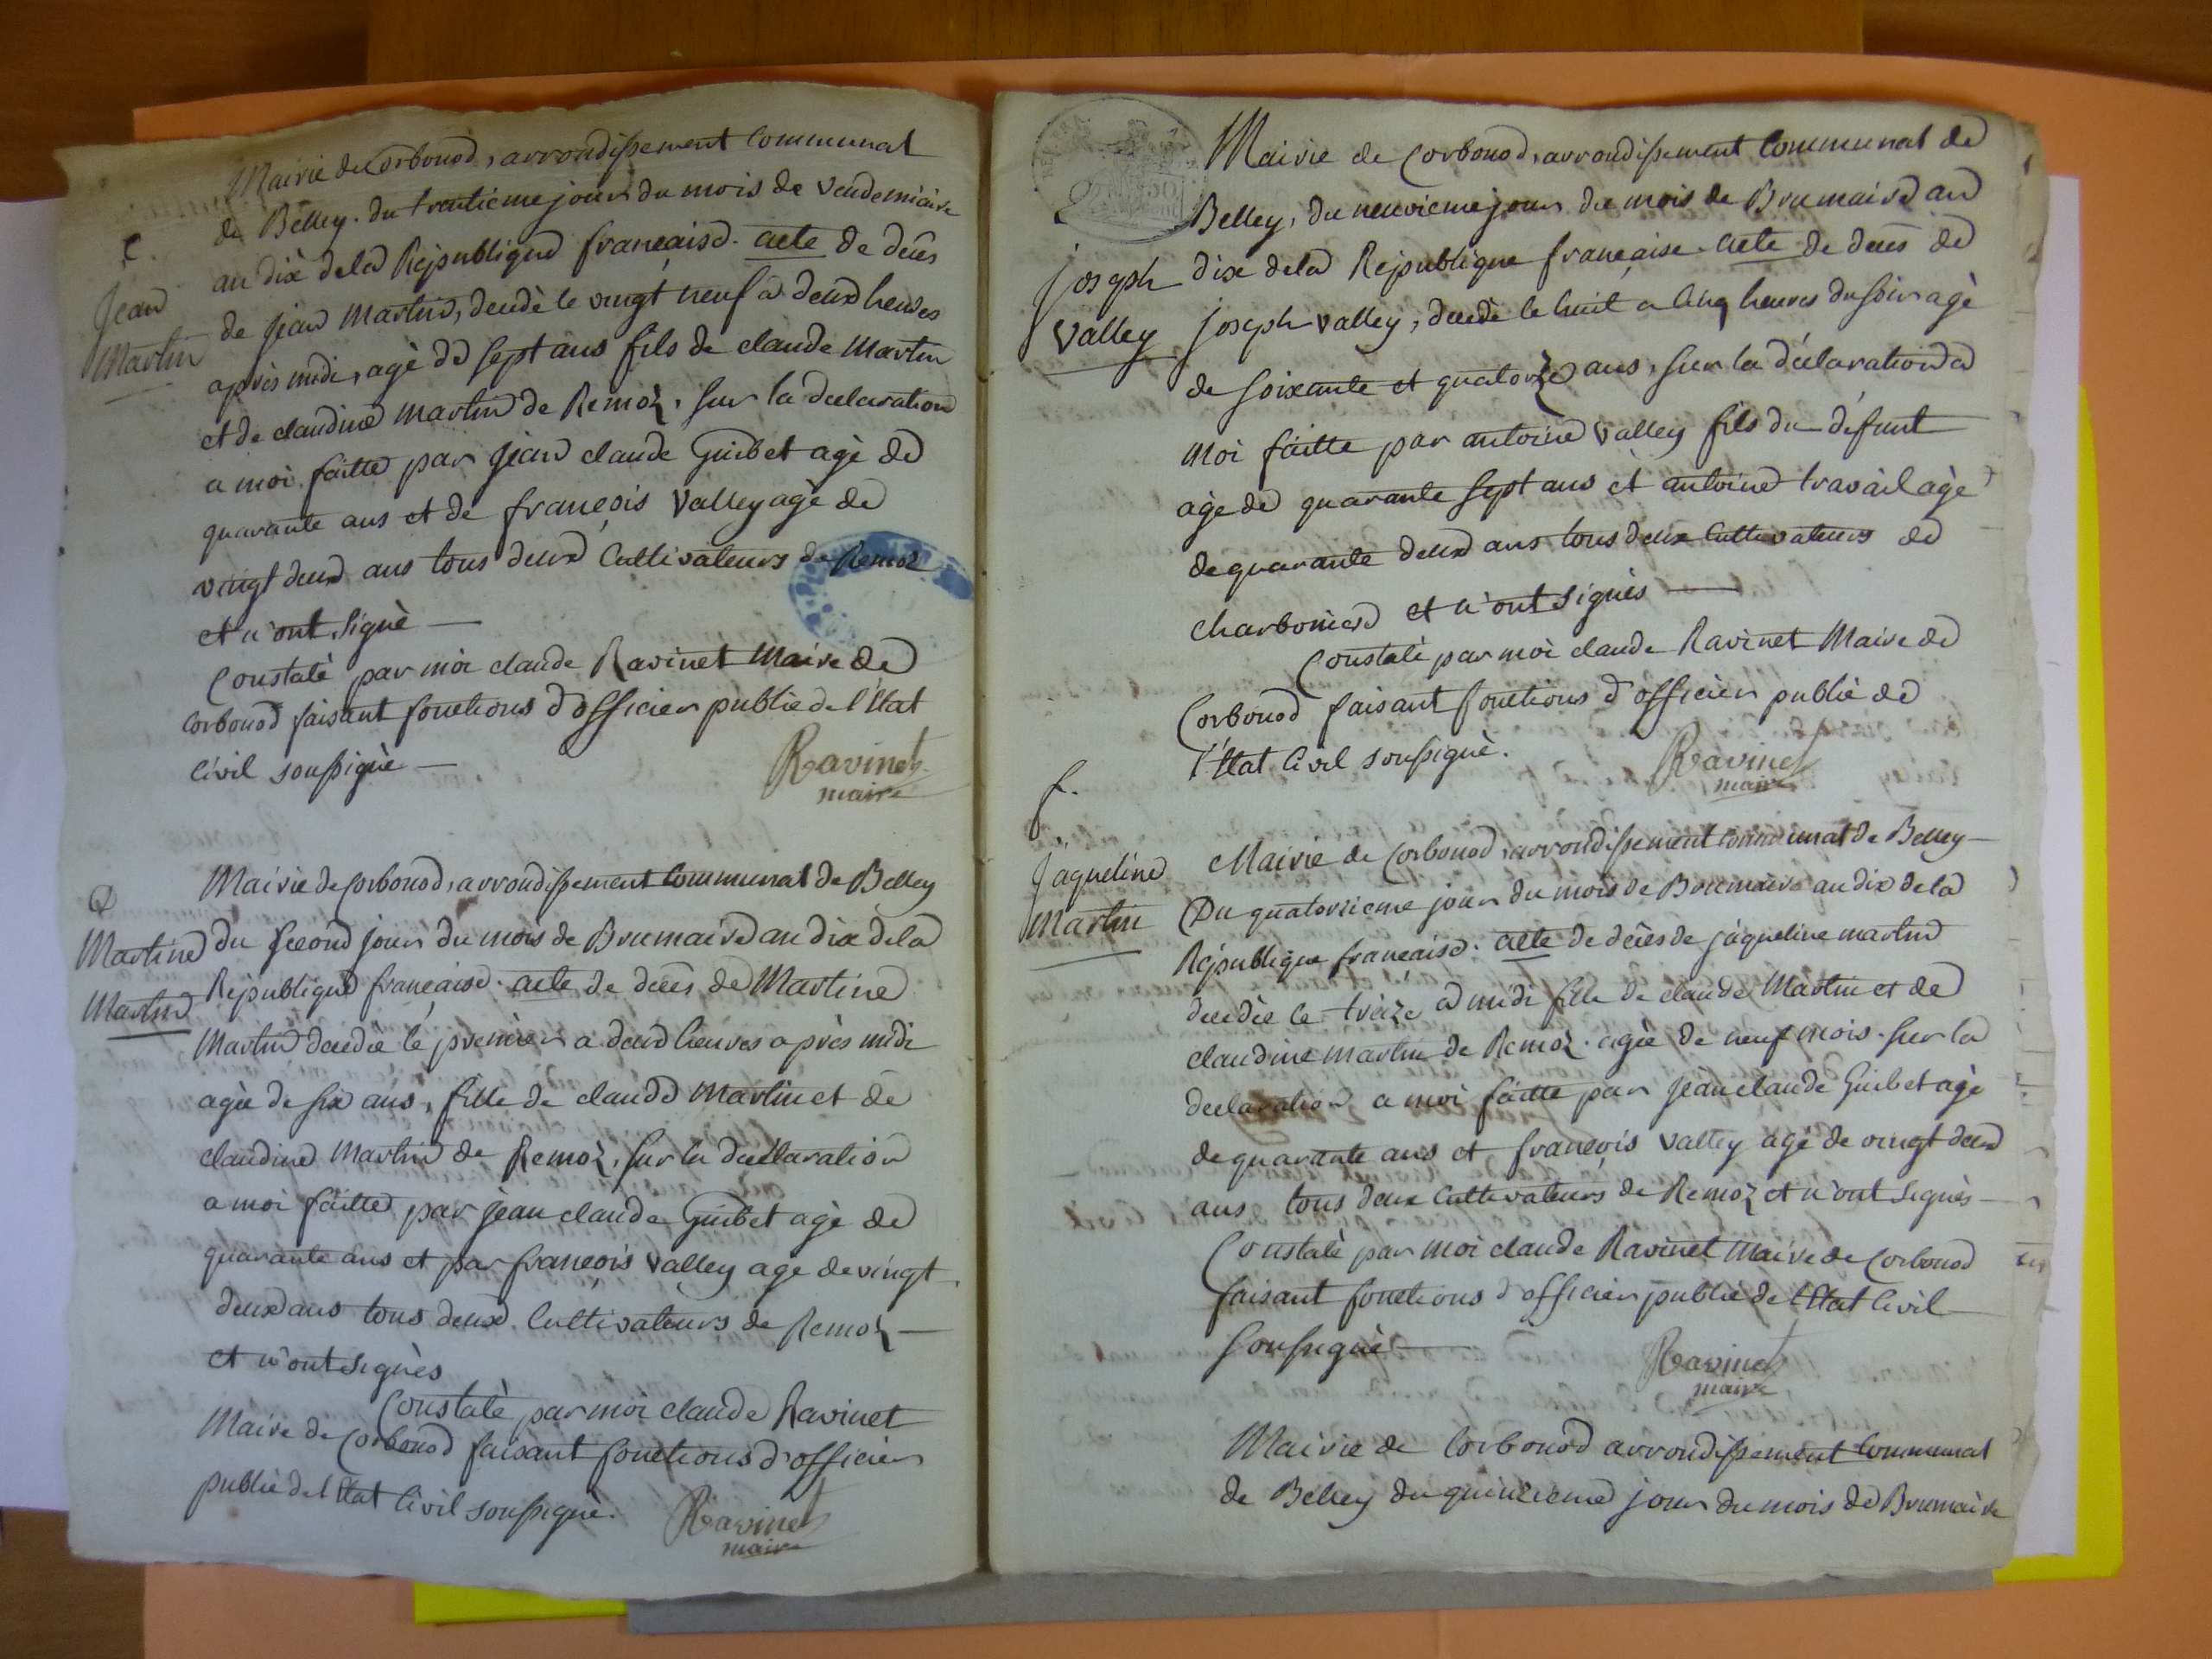 Mairie de Corbonod, arrondissement Communal
de Belley. du trentieme jour du mois de Vendemiaire
an dix de la Republique francaise. acte de decès
Jean
Martin
de jean Martin, decedè le vingt neuf a deux heures
après midi, agè de sept ans fils de claude Martin
et de claudine martin de Remoz, sur la declaration
a moi faitte par jean claude Guibet agè de
quarante ans et de francois Valley agè de
vingt deux ans tous deux Cultivateurs de Remoz
et n'ont signè —
Constatè par moi claude Ravinet Maire de
Corbonod faisant fonctions d'officier public de l'Etat
Civil soussignè —
Ravinet
maire
Mairie de Corbonod, arrondissement Communal de Belley
Martine
Martin
du second jour du mois de Brumaire an dix de la
Republique francaise. acte de decès de Martine
Martin decedèe le premier a deux heures après midi
agèe de six ans, fille de claude Martin et de
claudine Martin de Remoz, sur la declaration
a moi faitte par jean claude Guibet agè de
quarante ans et par francois Valley age de vingt
deux ans tous deux Cultivateurs de Remoz —
et n'ont signès
Constatè par moi claude Ravinet
Maire de Corbonod faisant fonctions d'officier
public de l'Etat Civil soussignè.
Ravinet
maire
Mairie de Corbonod, arrondissement Communal de
Belley, du neuvieme jour du mois de Brumaire an
joseph
Valley
dix de la Republique francaise. acte de decès de
joseph Valley, decedè le huit a cinq heures du soir agè
de soixante et quatorze ans, sur la declaration a
moi faitte par antoine Valley fils du défunt
agè de quarante sept ans et antoine travail agè
de quarante deux ans tous deux Cultivateurs de
Charboniere et n'ont signès —
Constatè par moi claude Ravinet Maire de
Corbonod faisant fonctions d'officier public de
l'Etat Civil soussignè.
Ravinet
maire
f.
Jaqueline
Martin
Mairie de Corbonod, arrondissement Communal de Belley —
Du quatorzieme jour du mois de Brumaire an dix de la
Republique francaise. acte de decès de jaqueline martin
decedèe le treize a midi fille de claude Martin et de
claudine martin de Remoz. agèe de neuf mois. sur la
declaration a moi faitte par jean claude Guibet agè
de quarante ans et francois Valley agè de vingt deux
ans tous deux Cultivateurs de Remoz et n'ont signès —
Constatè par moi claude Ravinet Maire de Corbonod
faisant fonctions d'officier public de l'Etat Civil —
soussignè —
Ravinet
maire
Mairie de Corbonod arrondissement Communal
de Belley du quinzieme jour du mois de Brumaire